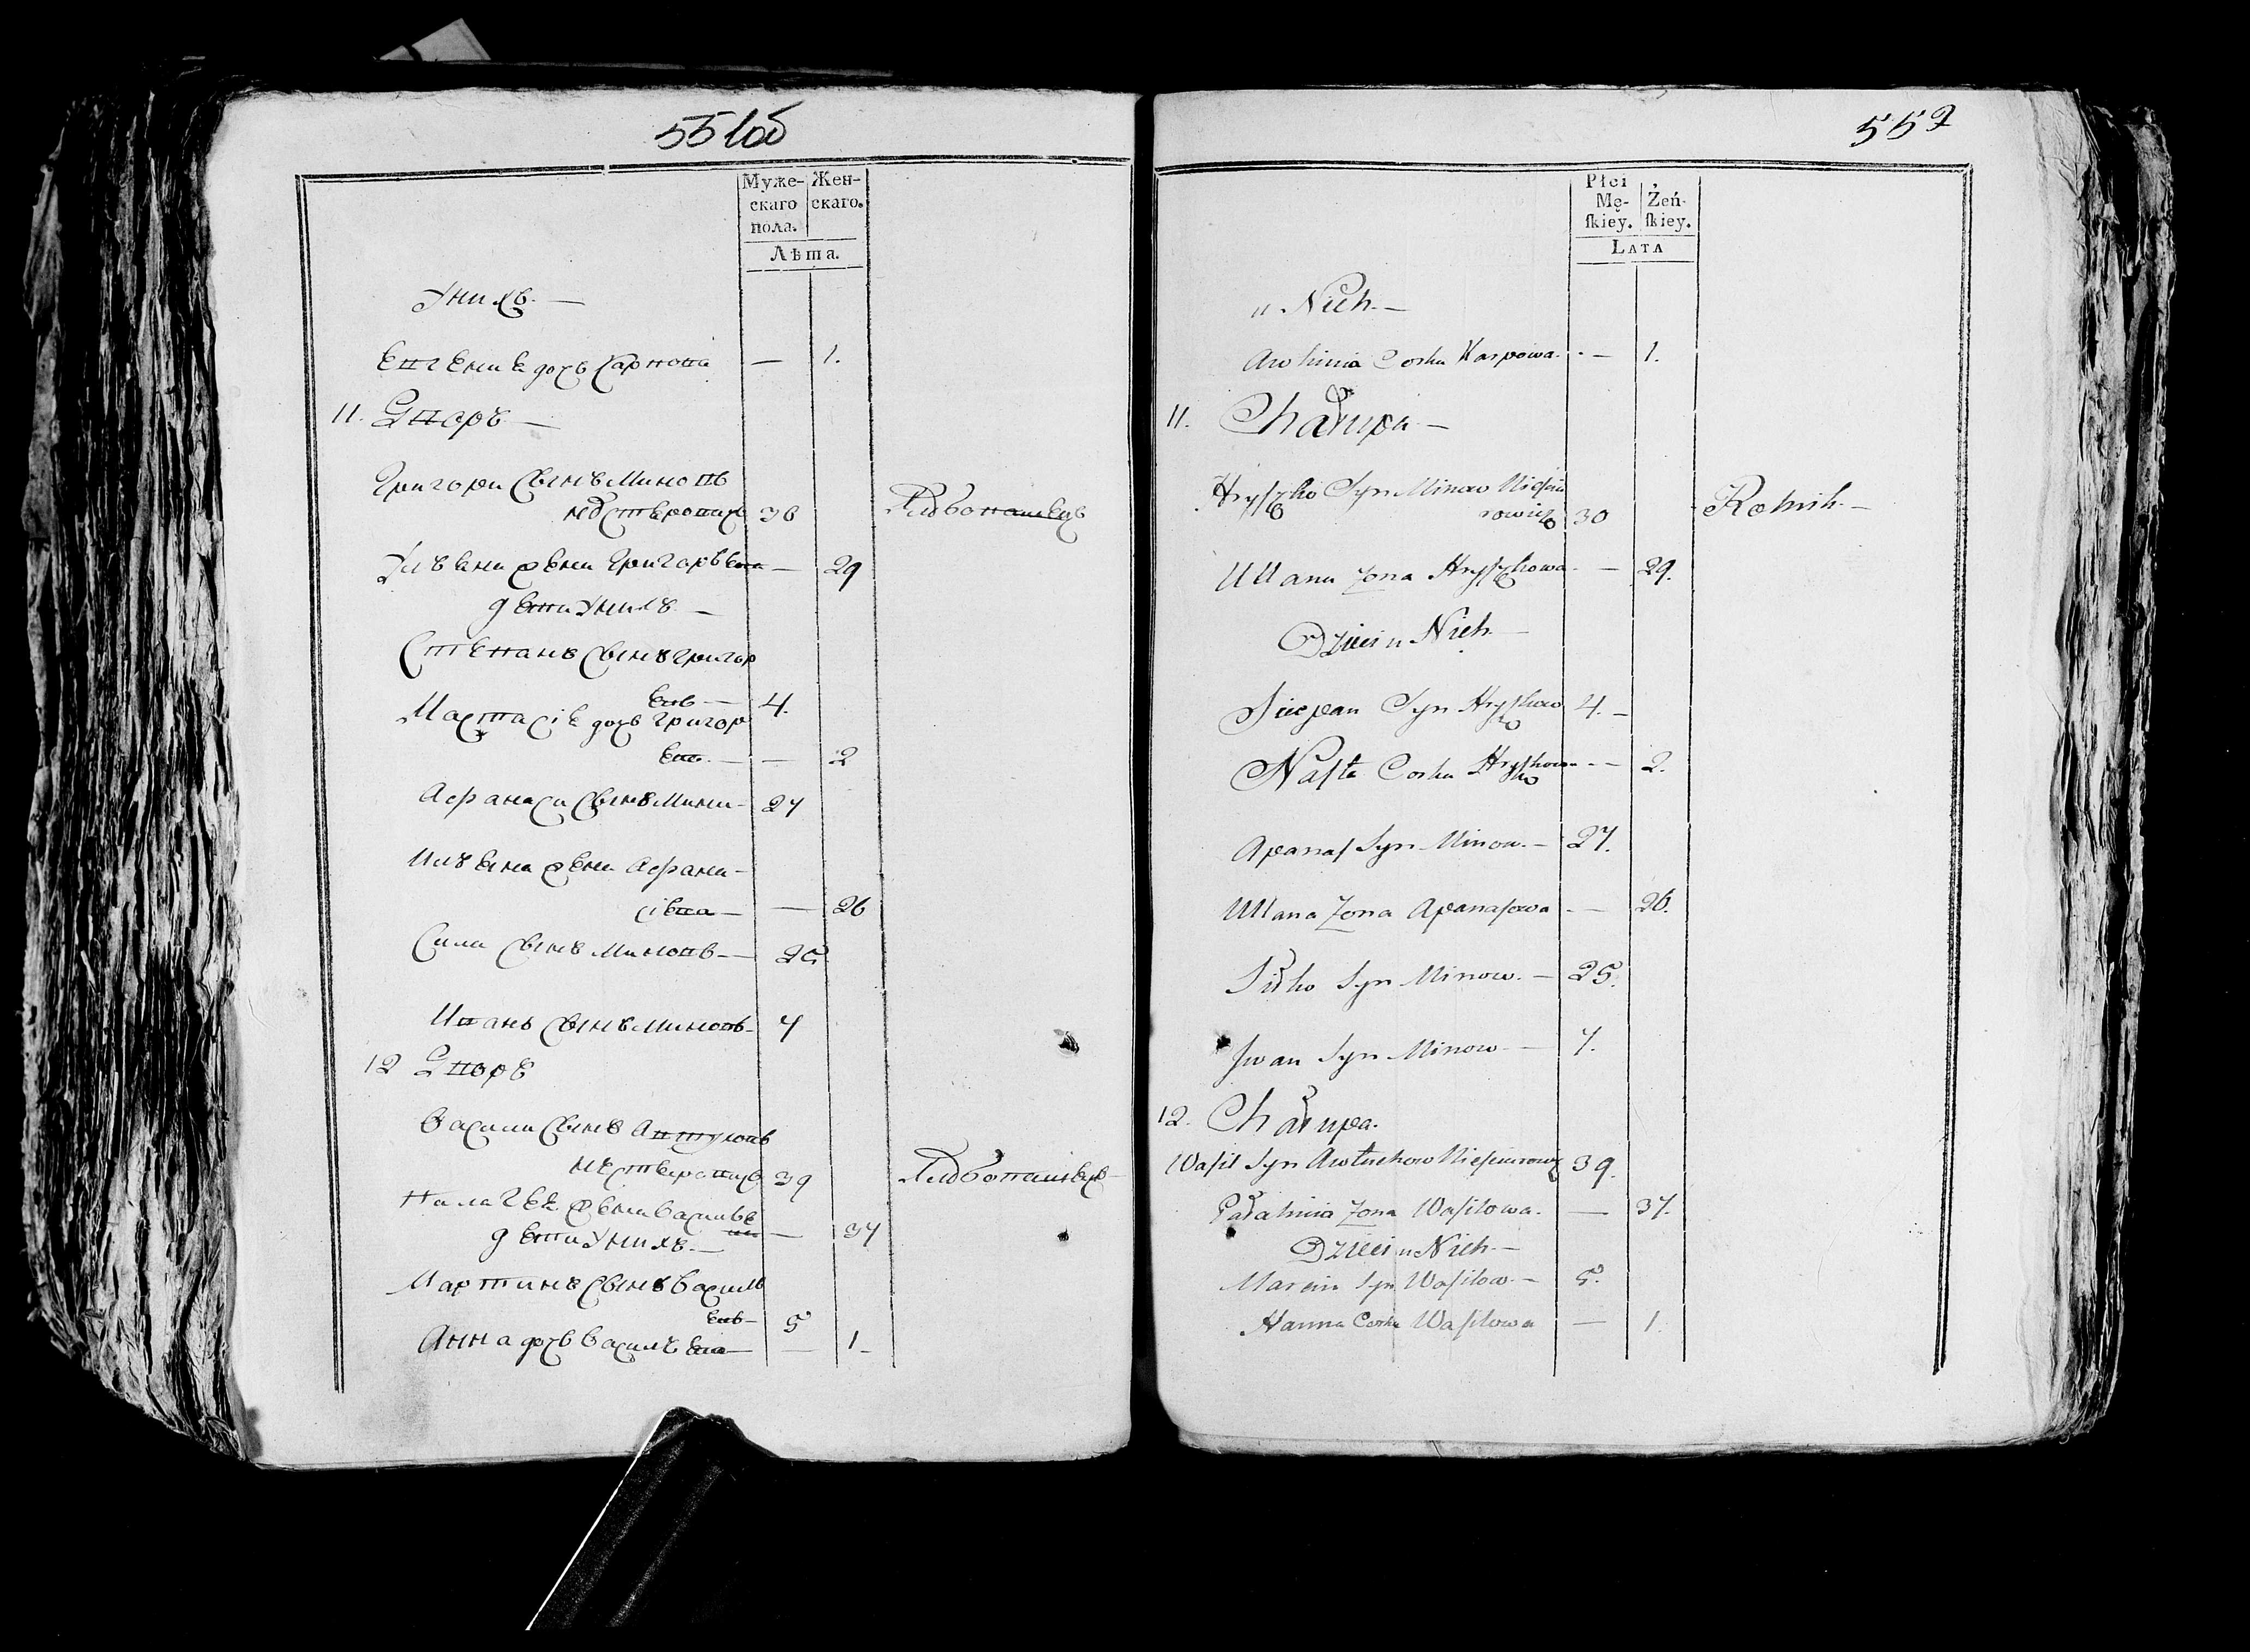 551об
Муже-
скаго
пола.
Жен-
скаго.
Лѣта.
у нихъ. —
Евгениѣ дочь Карпова — 1.
11. Дворъ —
Григори сынъ Миновъ
Нестеровичъ 30 Хлѣбопашецъ
Ульяна жена Григорьева — 29
дети у нихъ. —
Степанъ сынъ Григор
евъ — 4.
Настасiя дочь Григор
ева. — — 2
Афанаси сынъ Мини — 27
Ульяна жена Афана-
сiева — — 26
Сила сынъ Миновъ — 25
Иванъ сынъ Миновъ — 7
12 Дворъ
Васили сынъ Автуховъ
Нестеровичъ 39 Хлѣбопашецъ —
Палагея жена Василье
ва — 37
дети у нихъ. —
Мартинъ сынъ Василь
евъ — 5
Анна дочь Васильева — — 1 —
552
Płci
Mę-
ſkiey.
Żeń-
ſkiey.
Lata
u Nich. —
Awhinia Corka Karpowa. — 1.
11. Chałupa —
Hryſzko Syn Minow Nieſtie
rowicz 30 Rolnik. —
Ullana Zona Hryſzkowa — 29.
Dzieci u Nich. —
Sciepan Syn Hryſzkow 4. —
Naſta Corka Hryſzkowa — — 2.
Apanaſ Syn Minow. — 27.
Ullana Zona Apanaſowa — 26.
Siłko Syn Minow. — 25.
Jwan Syn Minow — 7.
12. Chałupa.
Waſil Syn Awtuchow Nieſcierowicz 39.
Pałahinia Zona Waſilowa. — 37.
Dzieci u Nich —
Marcin Syn Waſilow — 5.
Hanna Corka Waſilowa — 1.